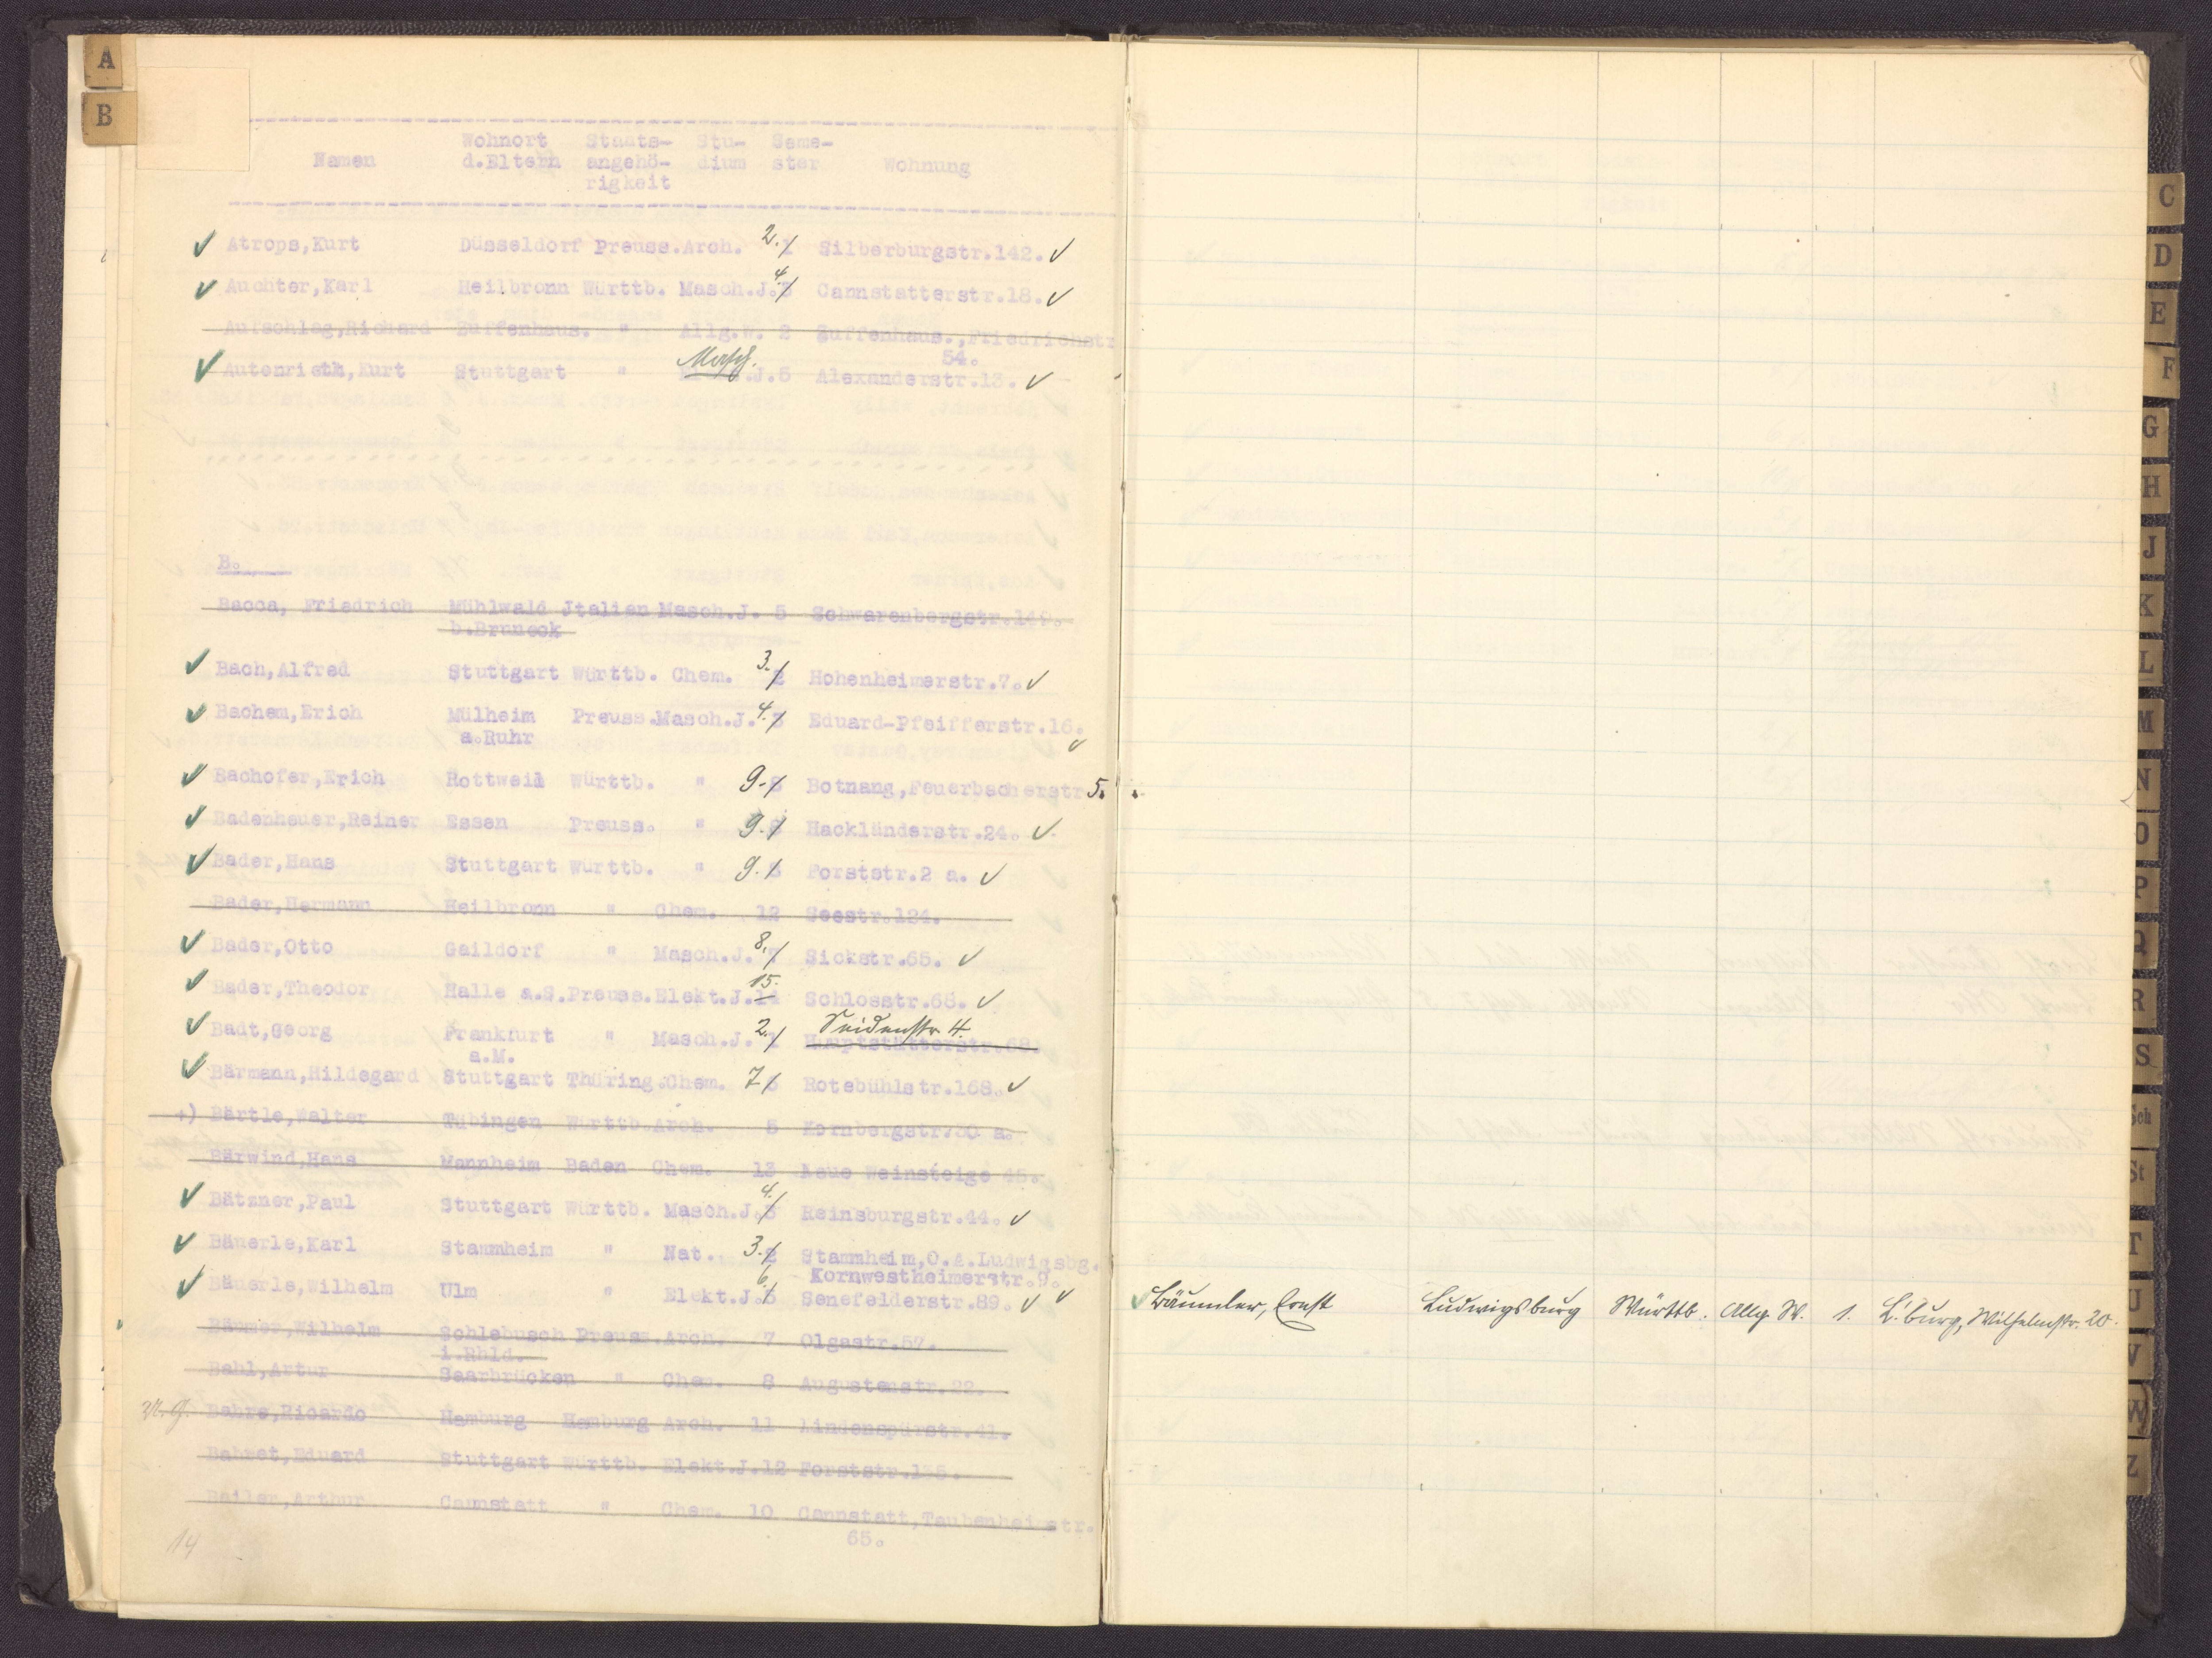 A
B
Wohnort Staats- Stu- Seme-
Namen d.Eltern angehö- dium ster Wohnung
rigkeit
Atrops,Kurt Düsseldorf Preuss.Arch. 2. 1 Silberburgstr.142. ✓
Auchter,Karl Heilbronn Württb. Masch.J. 4. 3 Cannstatterstr.18. ✓
Aufschlag,Richard Zuffenhaus. " Allg.W. 2 Zuffenhaus.,Friedrichstr
54.
Masch.
Autenrieth,Kurt Stuttgart " J.5 Alexanderstr.13. ✓
B.
Bacca, Friedrich Mühlwald Jtalien Masch.J. 5 Schwarenbergstr.149.
b.Bruneck
Bach,Alfred Stuttgart Württb. Chem. 3. 2 Hohenheimerstr.7. ✓
Bachem,Erich Mülheim Preuss.Masch.J. 4. 3 Eduard-Pfeifferstr.16.
a.Ruhr ✓
Bachofer,Erich Rottweil Württb. " 9. 8 Botnang,Feuerbacherstr 5.
Badenheuer,Reiner Essen Preuss. " 9. 8 Hackländerstr.24. ✓
Bader,Hans Stuttgart Württb. " 9. 8 Forststr.2 a. ✓
Bader,Hermann Heilbronn " Chem. 12 Seestr.124.
Bader,Otto Gaildorf " Masch.J. 8. 7 Sickstr.65. ✓
Bader,Theodor Halle a.S.Preuss.Elekt.J. 15. 14 Schlosstr.68. ✓
Seidenstr 4.
Badt,Georg Frankfurt " Masch.J. 2. 1 Hauptstätterstr.68.
a.M.
Bärmann,Hildegard Stuttgart Thüring.Chem. 7 6 Rotebühlstr.168. ✓
+) Bärtle,Walter Tübingen Württb.Arch. 5 Kornbergstr.30 a.
Bärwind,Hans Mannheim Baden Chem. 13 Neue Weinsteige 45.
Bätzner,Paul Stuttgart Württb. Masch.J. 4. 3 Reinsburgstr.44. ✓
Bäuerle,Karl Stammheim " Nat. 3. 2 Stammheim,O.A.Ludwigsbg.
Kornwestheimerstr.9.
Bäuerle,Wilhelm Ulm " Elekt.J. 6. 5 Senefelderstr.89. ✓ ✓
Bäumer,Wilhelm Schlebusch Preuss.Arch. 7 Olgastr.57.
i.Rhld.
Bahl,Artur Saarbrücken " Chem. 8 Augustenstr.22.
U.G. Bahre,Ricardo Hamburg Hamburg Arch. 11 Lindenspürstr.41.
Bahzet,Eduard Stuttgart Württb. Elekt.J.12 Forststr.135.
Bailer,Arthur Cannstatt " Chem. 10 Cannstatt,Taubenheimstr.
65.
14
✓ Bäumler, Ernst Ludwigsburg Württb. Allg. W. 1. L'burg, Wilhelmstr. 20.
C
D
E
F
G
H
J
K
L
M
N
O
P
Q
R
S
Sch
St
T
U
V
W
Z